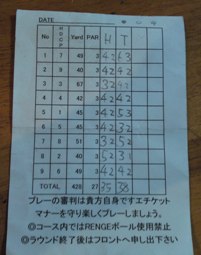 DATE
No HDCP Yard PAR H T
1 7 49 3 42 63
2 9 40 3 42 42
3 3 67 3 32 42
4 42 3 42 42
5 45 3 42 53
6 45 3 42 32
7 51 3 32 52
8 40 3 52 31
9 49 3 42 42
TOTAL 428 27 35 38
プレーの審判は貴方自身ですエチケット
マナーを守り楽しくプレーしましょう。
◎コース内ではRENGEボール使用禁止
◎ラウンド終了後はフロントへ申し出下さい